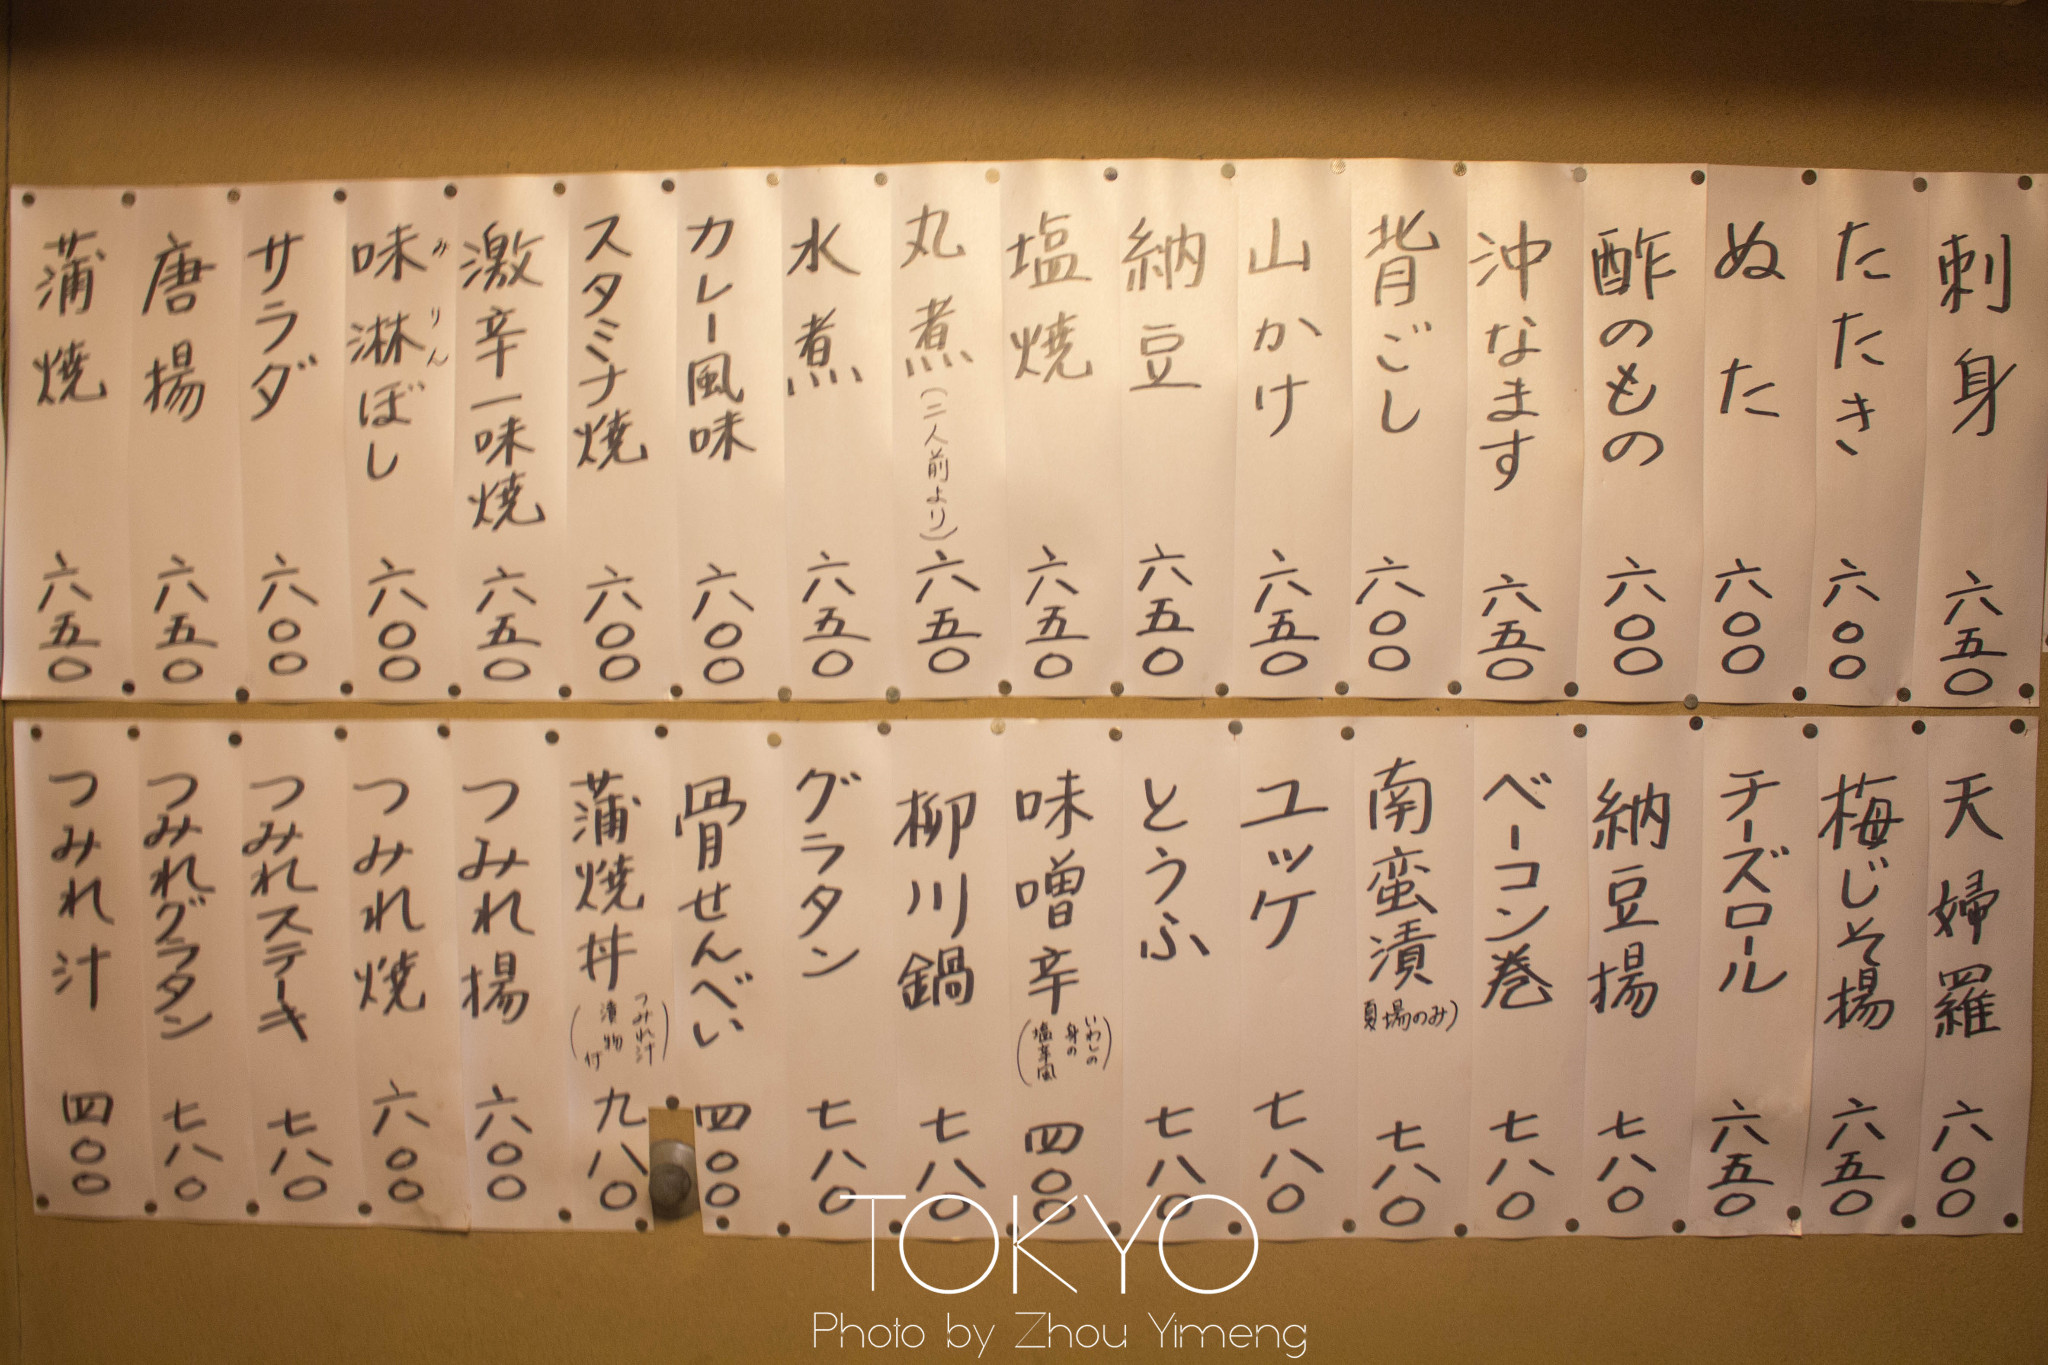 刺身 六五〇
たたき 六〇〇
ぬた 六〇〇
酢のもの 六〇〇
沖なます 六五〇
背ごし 六〇〇
山かけ 六五〇
納豆 六五〇
塩焼 六五〇
丸煮(二人前より) 六五〇
水煮 六五〇
カレー風味 六〇〇
スタミナ焼 六〇〇
激辛一味焼 六五〇
味淋ぼし 六〇〇
みりん
サラダ 六〇〇
唐揚 六五〇
蒲焼 六五〇
天婦羅 六〇〇
梅じそ揚 六五〇
チーズロール 六五〇
納豆揚 七八〇
ベーコン巻 七八〇
南蛮漬 夏場のみ) 七八〇
ユッケ 七八〇
とうふ 七八〇
味噌辛 四〇〇
(いわしの
身の
塩辛風)
柳川鍋 七八〇
グラタン 七八〇
骨せんべい 四〇〇
蒲焼丼 九八〇
(つみれ汁
漬物付)
つみれ揚 六〇〇
つみれ焼 六〇〇
つみれステーキ 七八〇
つみれグラタン 七八〇
つみれ汁 四〇〇
TOKYO
Photo by Zhou Yimeng